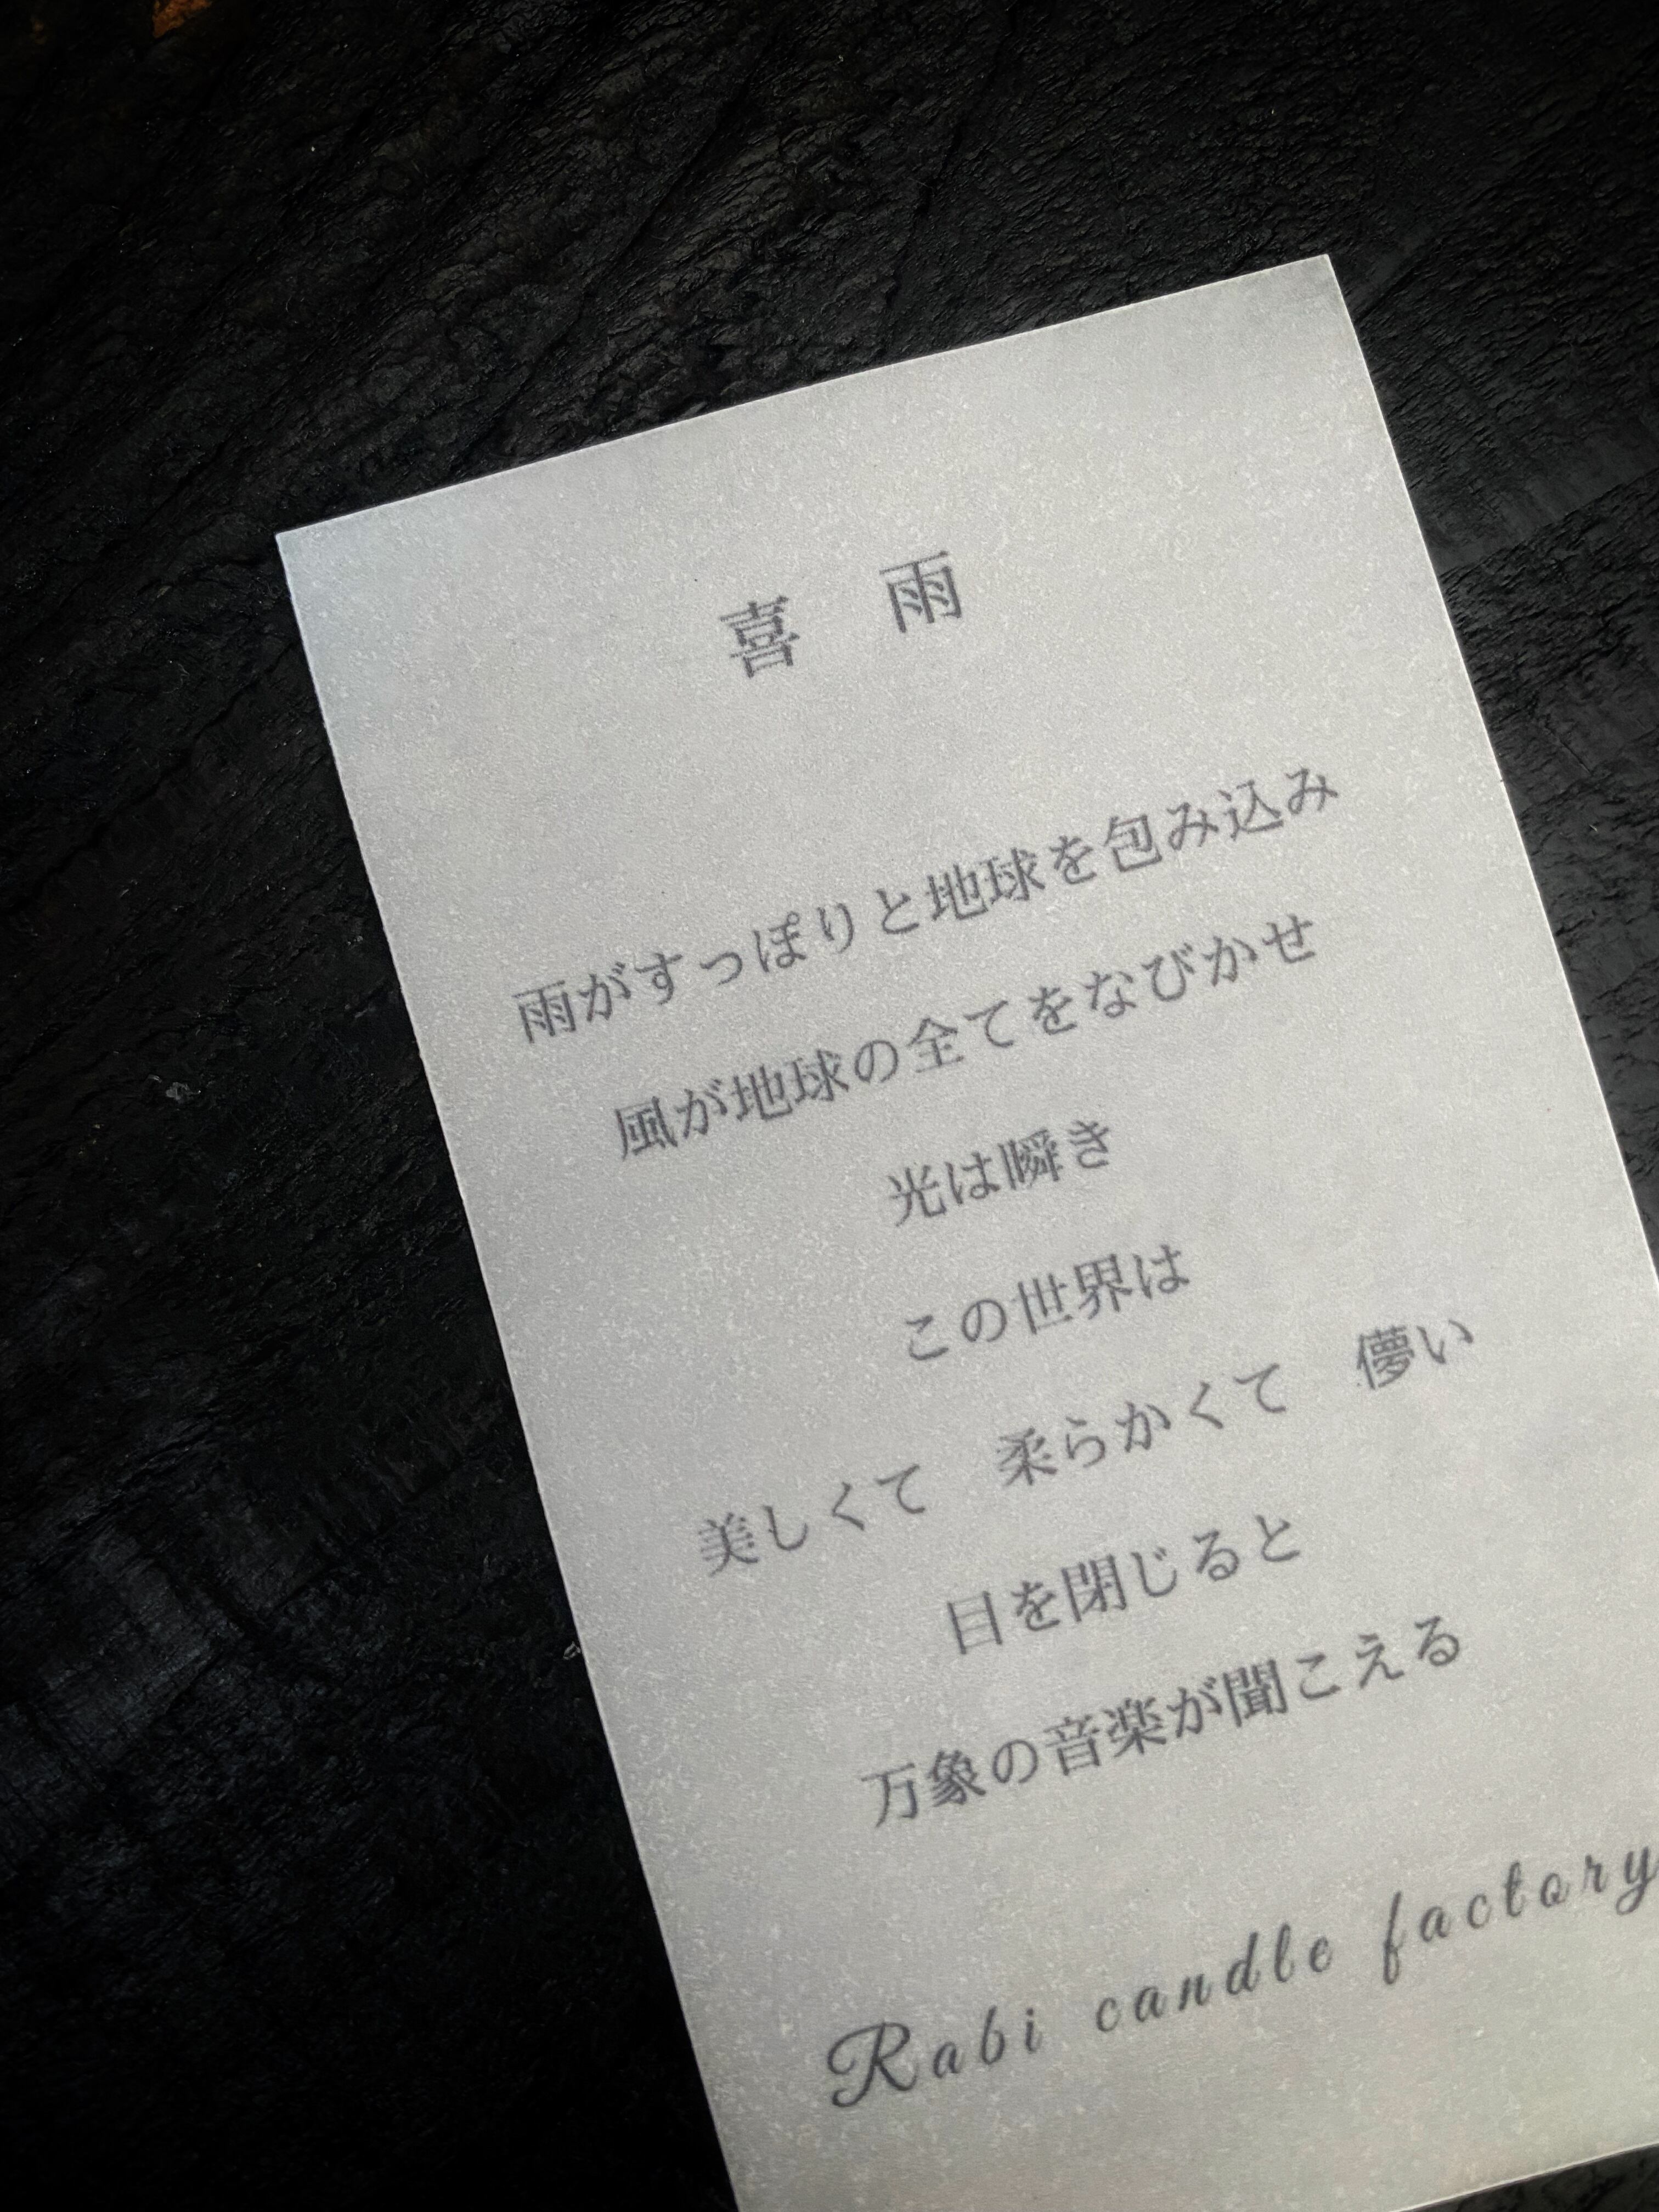 喜　雨
雨がすっぽりと地球を包み込み
風が地球の全てをなびかせ
光は瞬き
この世界は
美しくて　柔らかくて　儚い
目を閉じると
万象の音楽が聞こえる
Rabi candle factory